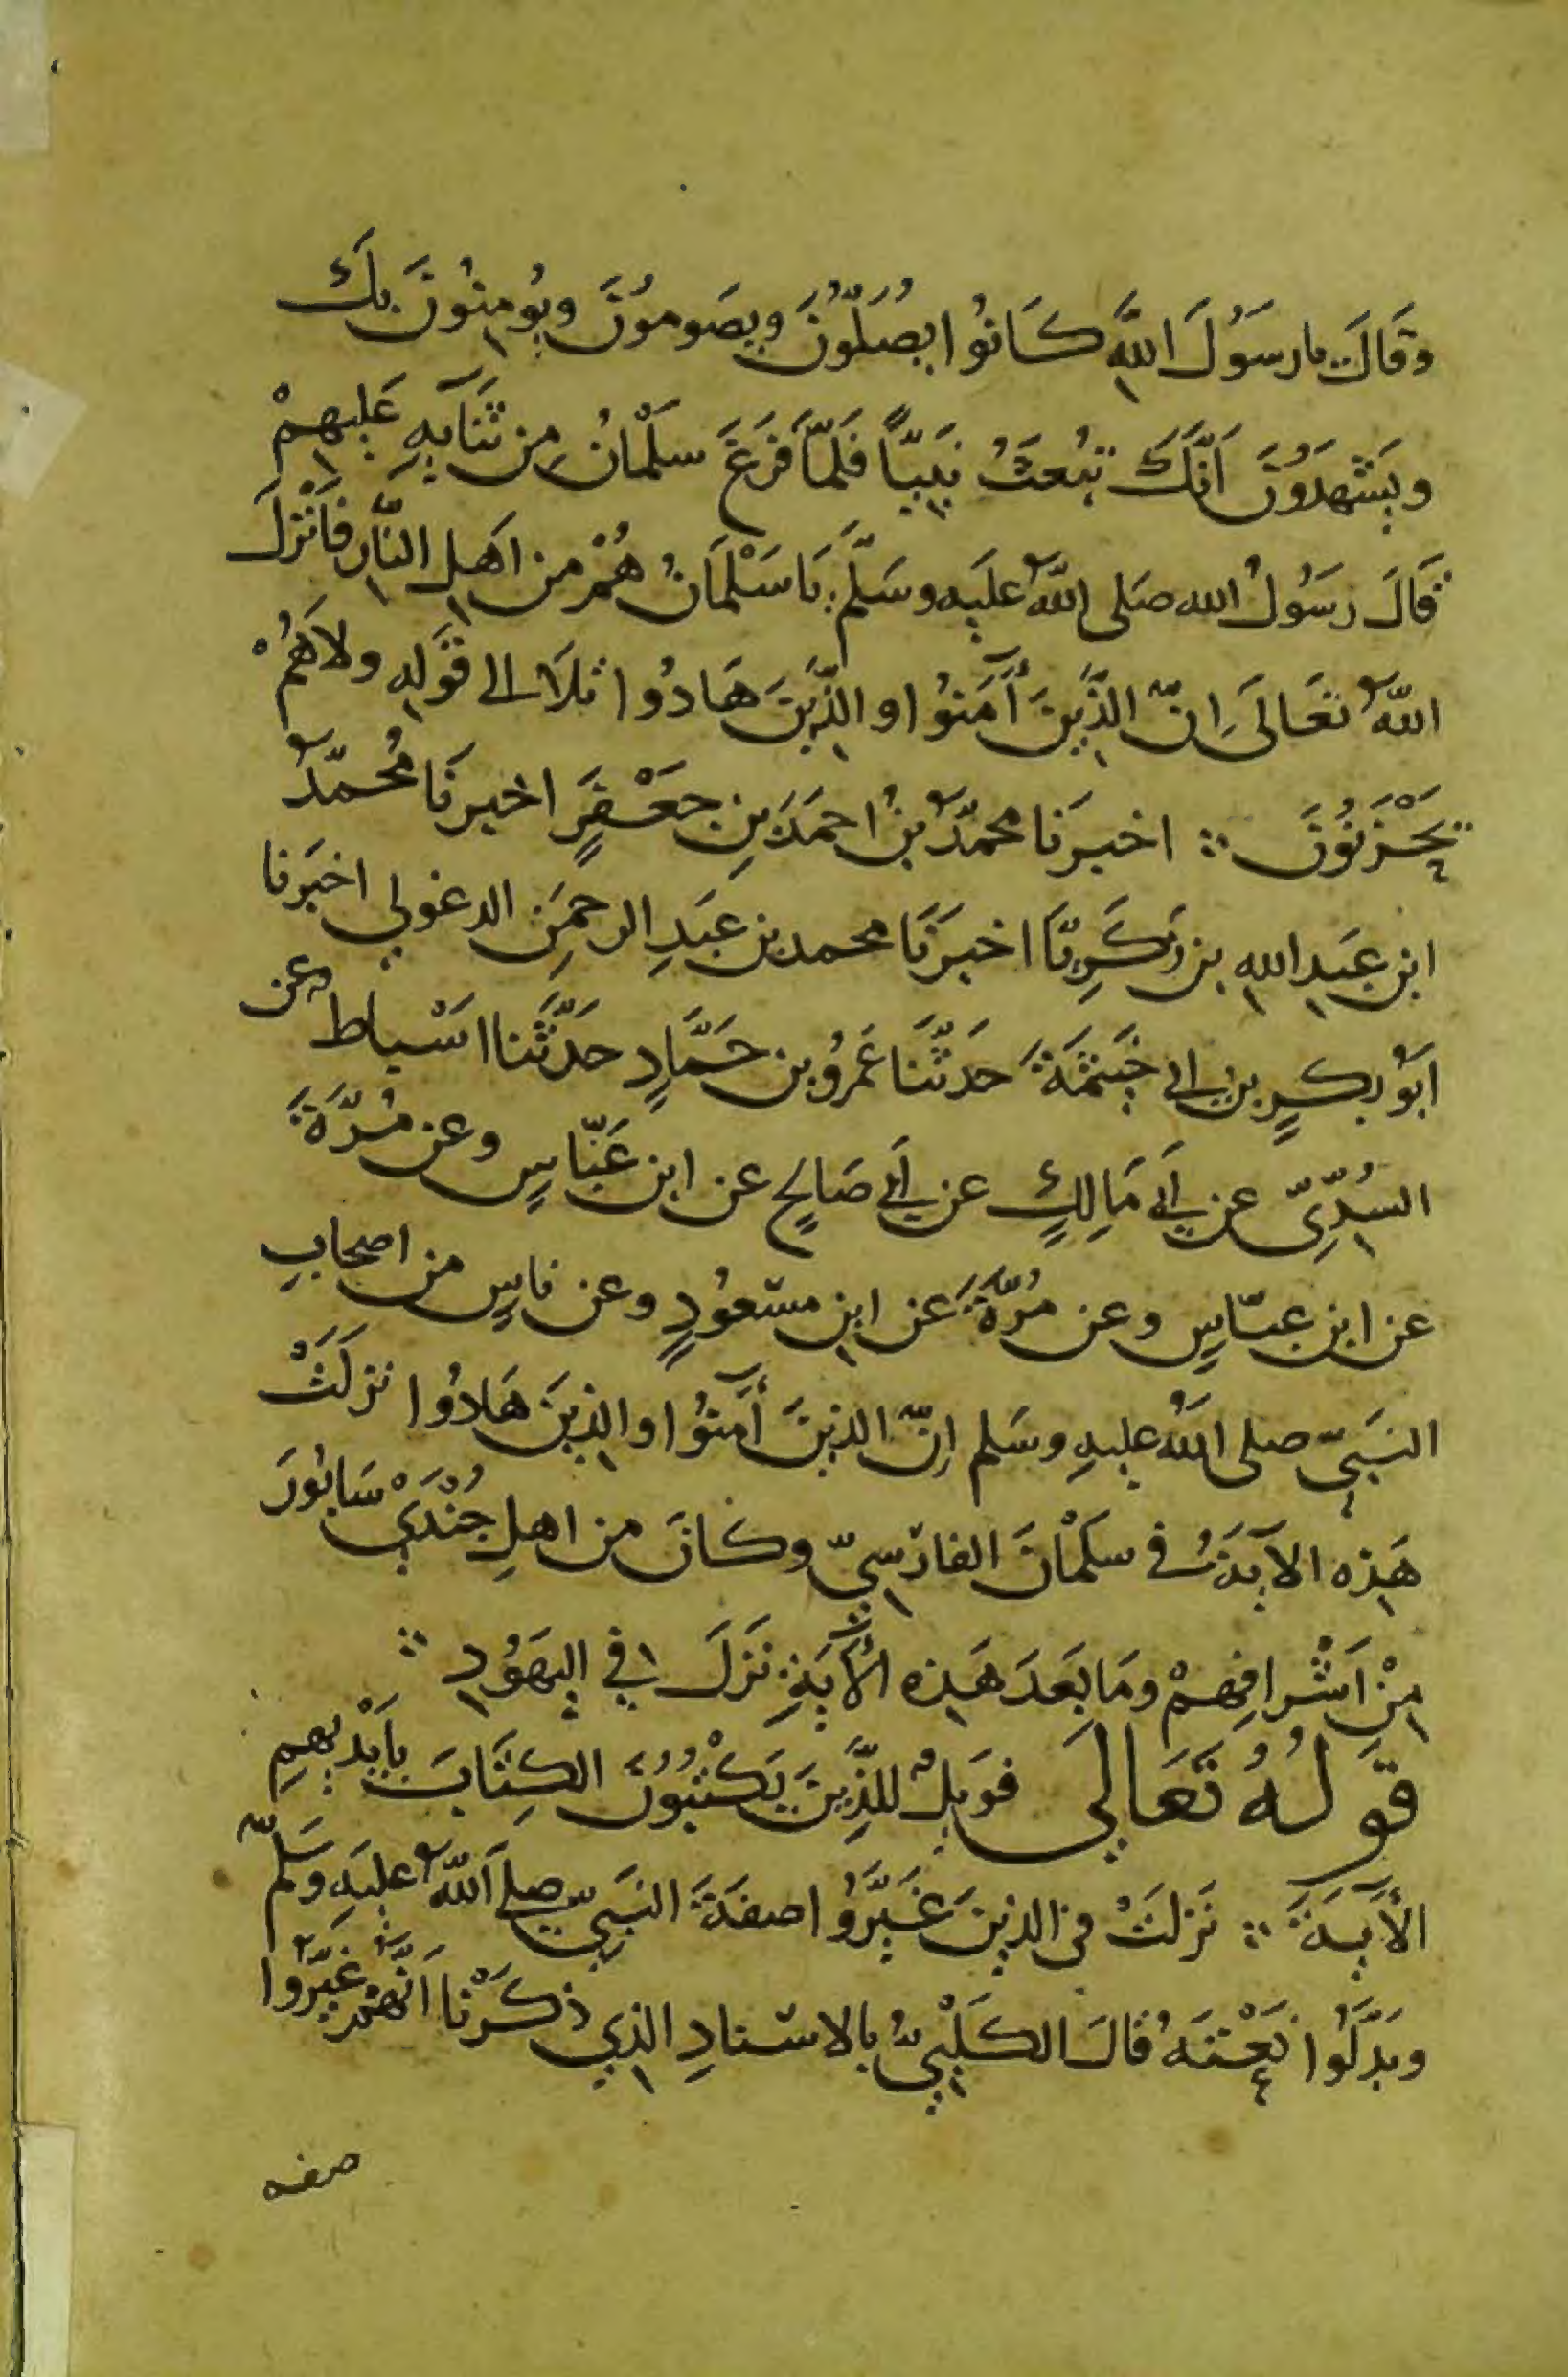 وقَالَ يا رسَوُلَ اللَّهِ كَانُوا يصُلّوُنَ ويصَومُونَ ويُومِنُونَ بِكَ
ويَشْهَدوُنَ اَنَّكَ تبُعثُ نبِيّاً فَلَمَّا فَرَغَ سَلْمانُ مِن ثَنَايهِ عَلَيهِمْ
قَالَ رسَوُلُ الله صَلى اللَّهُ علَيهِ وسَلَّمَ يَا سَلْمَانُ هُمْ من اهَلِ النَّارِ فَاَنْزَلَ
اللَّهُ تعَالَى اِنَّ الذَّيِنَ أَمَنوُا والذَّيِنَ هَادُوا تلاَ الى قَولِهِ ولاَ هُمْ
يَحْزَنوُنَ ∴ اخبرَنا محمّدُ بنُ احمَدَ بنِ جَعْفَرٍ اخبرنَا مُحمّدُ
ابن عَبدِ اللهِ بن زَكَرِيّا اخبَرَنَا محمد بن عَبَدِ الرحمَنِ الدغولي اخبَرنا
ابَوُ بكرٍ بن ابى خَيثَمَةَ حَدثَّنَا عَمرُو بن حَمَّادٍ حَدَّثَنا اسَْباط عن
السُدِّيّ عن اَبي مَالِكٍ عن اَبي صَالحٍ عن ابن عَبَّاسٍ وعن مُرَّةَ
عن ابن عبّاسٍ وعن مُرّةَ عن ابن مسَعُودٍ وعن ناسٍ من اصحابِ
النبَيّ صلى اللهُ عليهِ وسَلم اِنّ الذينَ أَمنَوُا والذِينَ هَادُوا نزلَتْ
هَذِه الآيةَُ في سَلْمانَ الفارسيّ وكانَ من اهلِ جُنْدَيْ سَابُورَ
مِنْ اَشْرافِهِمْ ومَا بَعَدَ هَذِه الآيَةِ نَزَلَ في اليهَوُدِ ∴
قوَلُهُ تَعَالى فوَيلٌ للذَّيِنَ يَكْتبُوُنَ الكِتَابَ بِاَيْديهِمِ
الآيةَ ∴ نَزلتَْ في الذينَ غَيَّرُوا صفةَ النبَيّ صلى اللَّهُ عليَهِ وَسَلّم
وبدَّلَوُا نَعْتَهُ قالَ الكَلْبيُّ بالاسنادِ الذي ذكَرْنا انَّهُم غيَّروا
صفه